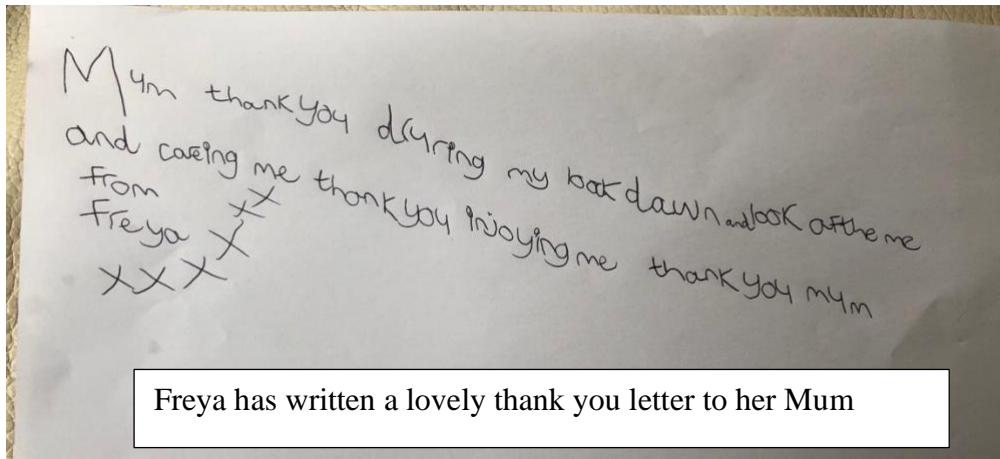 Mum thankyou druring my lookdawn and look afthe me
and careing me thankyou injoying me thankyou mum
from
Freya X X X
X X X
Freya has written a lovely thank you letter to her Mum